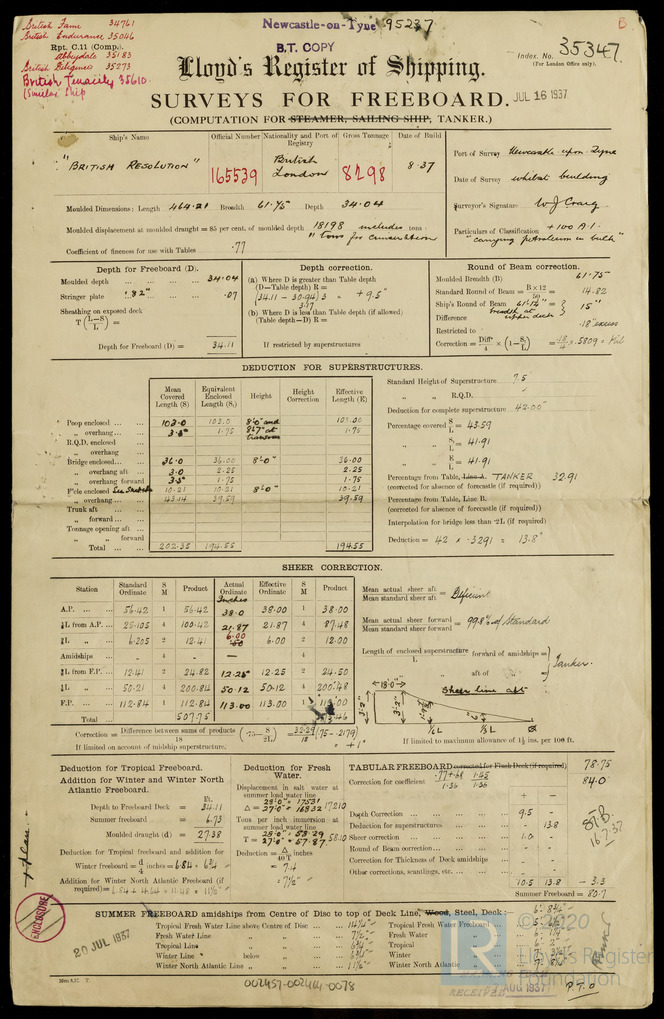 British Fame 34761
British Endurance 35046
Rpt. C.11 (Comp.)
Abbeydale 35183
British Diligence 35273
British Tenacity 35610
(Similar Ship
Newcastle-on-Tyne 95237
B
B.T. COPY
Index. No. 35347
(For London Office only).
Lloyd's Register of Shipping.
SURVEYS FOR FREEBOARD.
JUL 16 1937
(COMPUTATION FOR STEAMER, SAILING SHIP, TANKER.)
Ship's Name Official Number Nationality and Port of Registry Gross Tonnage Date of Build
"BRITISH RESOLUTION" 165539 British London 8298 8.37
Port of Survey Newcastle upon Tyne
Date of Survey whilst building
Surveyor's Signature W J Craig
Particulars of Classification +100 A.1.
"carrying petroleum in bulk"
Moulded Dimensions: Length 464.21 Breadth 61.75 Depth 34.04
Moulded displacement at moulded draught = 85 per cent. of moulded depth 18198 includes tons
Coefficient of fineness for use with Tables .77
Depth for Freeboard (D).
Moulded depth 34.04
Stringer plate .82" .07
Sheathing on exposed deck
T (L-S/L) =
Depth for Freeboard (D) = 34.11
Depth correction.
(a) Where D is greater than Table depth
(D—Table depth) R =
(34.11 - 30.94) 3 = + 9.5"
3.17
(b) Where D is less than Table depth (if allowed)
(Table depth—D) R =
If restricted by superstructures
Round of Beam correction.
Moulded Breadth (B) 61.75
Standard Round of Beam = B × 12 / 50 = 14.82
Ship's Round of Beam = 15"
Difference
Restricted to .18" excess
Correction = Diff/4 × (1 - S/L) = .18/4 × .5809 = Nil
DEDUCTION FOR SUPERSTRUCTURES.
Mean Covered Length (S) Equivalent Enclosed Length (S₁) Height Height Correction Effective Length (E)
Poop enclosed 103.0 103.0 8'0" and 103.00
„ overhang 3.5" 1.75 8'7" at transom 1.75
R.Q.D. enclosed
„ overhang
Bridge enclosed 36.0 36.00 8'0" 36.00
„ overhang aft 3.0 2.25 2.25
„ overhang forward 3.5 1.75 1.75
F'cle enclosed See Sketch 10.21 10.21 8'0" 10.21
„ overhang 43.14 39.59 39.59
Trunk aft
„ forward
Tonnage opening aft
„ „ forward
Total 202.35 194.55 194.55
Standard Height of Superstructure 7.5
„ „ R.Q.D.
Deduction for complete superstructure 42.00"
Percentage covered S/L = 43.59
„ „ S₁/L = 41.91
„ „ E/L = 41.91
Percentage from Table, Line A. TANKER 32.91
(corrected for absence of forecastle (if required))
Percentage from Table, Line B.
(corrected for absence of forecastle (if required))
Interpolation for bridge less than ·2L (if required)
Deduction = 42 × .3291 = 13.8"
SHEER CORRECTION.
Station Standard Ordinate S M Product Actual Ordinate Effective Ordinate S M Product
Inches
A.P. 56.42 1 56.42 38.0 38.00 1 38.00
⅙L from A.P. 25.105 4 100.42 21.87 21.87 4 87.48
⅓L „ 6.205 2 12.41 6.00 6.00 2 12.00
Amidships - 4 - - 4
⅓L from F.P. 12.41 2 24.82 12.25 12.25 2 24.50
⅙L „ 50.21 4 200.84 50.12 50.12 4 200.48
F.P. 112.84 1 112.84 113.00 113.00 1 113.00
Total 507.75
Correction = Difference between sums of products / 18 (·75 - S/2L) = 32.29/18 (.75 - .2179)
If limited on account of midship superstructure. = + 1"
Mean actual sheer aft / Mean standard sheer aft = Deficient
Mean actual sheer forward / Mean standard sheer forward = 99.8% of Standard
Length of enclosed superstructure forward of amidships / L =
„ aft of „ = Tanker.
18'.0"
Sheer line aft
3'.2" 3'.2"
⅙L ⅓L
If limited to maximum allowance of 1½ ins. per 100 ft.
Deduction for Tropical Freeboard.
Addition for Winter and Winter North Atlantic Freeboard.
Ft.
Depth to Freeboard Deck = 34.11
Summer freeboard = 6.73
Moulded draught (d) = 27.38
Deduction for Tropical freeboard and addition for
Winter freeboard = d/4 inches = 6.84 = 6¾"
Addition for Winter North Atlantic Freeboard (if
required) = 6.84 + 4.64 = 11.48 = 11½"
Deduction for Fresh Water.
Displacement in salt water at summer load water line
28'.0" = 17531
Δ = 27'.0" = 16832 17210
Tons per inch immersion at summer load water line
28.0" = 58.29
T = 27'.0" = 57.87 58.10
Deduction = Δ/40T inches
= 7.4
= 7½"
TABULAR FREEBOARD corrected for Flush Deck (if required) 78.75
Correction for coefficient .77+.68 / 1.36 1.45 / 1.36 84.0
+ -
Depth Correction 9.5 -
Deduction for superstructures - 13.8
Sheer correction 1.0 -
Round of Beam correction
Correction for Thickness of Deck amidships
Other corrections, scantlings, etc.
10.5 13.8 - 3.3
Summer Freeboard = 80.7
16/7/37
ENCLOSURE
20 JUL 1937
SUMMER FREEBOARD amidships from Centre of Disc to top of Deck Line, Wood, Steel, Deck:
Tropical Fresh Water Line above Centre of Disc 14¼"
Fresh Water Line „ „ 7½"
Tropical Line „ „ 6¾"
Winter Line below „ 6¾"
Winter North Atlantic Line „ „ 11½"
Tropical Fresh Water Freeboard
Fresh Water „
Tropical „
Winter „
Winter North Atlantic „
© 2020
LR
Lloyd's Register
Foundation
RECEIVED AUG 1937
P.T.O
002457-002464-0078